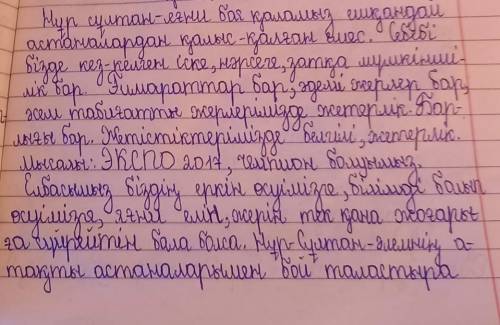 Нұр сұлтан-яғни бас қаламыз ешқандай
астаналардан қалыс-қалған емес. Себебі
бізде кез-келген іске, нәрсеге, затқа мүмкінші-
лік бар. Ғимараттар бар, әдемі жерлер бар,
әсем табиғатты жерлерімізде жетерлік. Бар-
лығы бар. Жетістіктерімізде белгілі, жетерлік.
Мысалы: ЭКСПО 2017, чемпион болуымыз.
Елбасымыз біздің еркін өсуімізге, білімді болып
өсуімізге, яғни елін, жерін тек қана жоғарығ
ға сүйрейтін бала болса. Нұр-Сұлтан-әлемнің а-
тақты астаналарымен бой таластыра